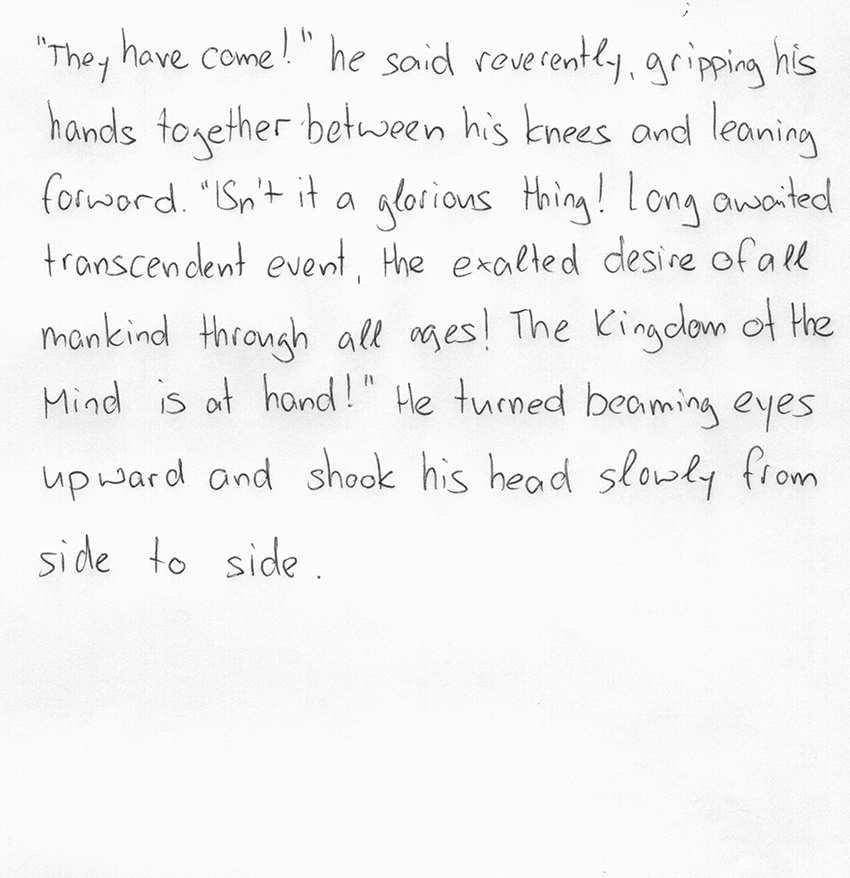 "They have come!" he said reverently, gripping his
hands together between his knees and leaning
forward. "Isn't it a glorious thing! Long awaited
transcendent event, the exalted desire of all
mankind through all ages! The Kingdom of the
Mind is at hand!" He turned beaming eyes
upward and shook his head slowly from
side to side.